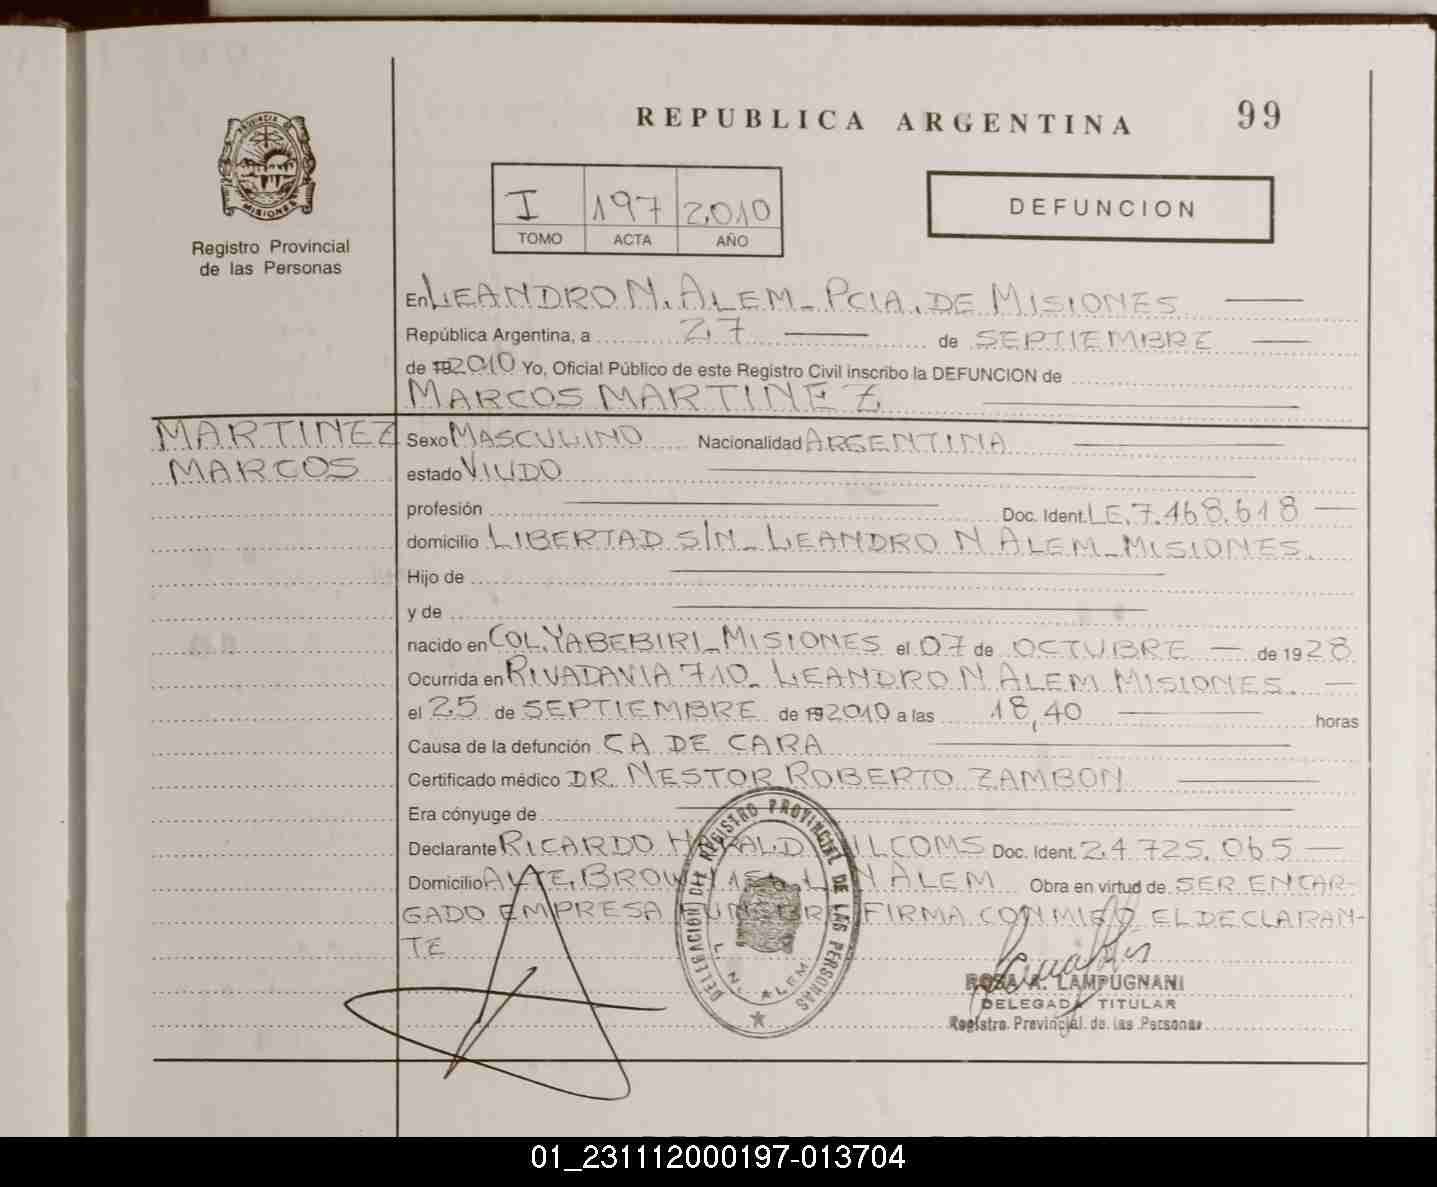 REPUBLICA ARGENTINA
99
PROVINCIA DE
MISIONES
Registro Provincial
de las Personas
I 197 2010
TOMO ACTA AÑO
DEFUNCION
En LEANDRO N. ALEM - PCIA. DE MISIONES
República Argentina, a 27 de SEPTIEMBRE
de 192010 Yo, Oficial Público de este Registro Civil inscribo la DEFUNCION de
MARCOS MARTINEZ
MARTINEZ
MARCOS
Sexo MASCULINO Nacionalidad ARGENTINA
estado VIUDO
profesión Doc. Ident. LE. 7.468.618
domicilio LIBERTAD S/N - LEANDRO N ALEM - MISIONES.
Hijo de
y de
nacido en COL. YABEBIRI - MISIONES el 07 de OCTUBRE de 1928
Ocurrida en RIVADAVIA 710 - LEANDRO N ALEM MISIONES.
el 25 de SEPTIEMBRE de 192010 a las 18,40 horas
Causa de la defunción CA DE CARA
Certificado médico DR. NESTOR ROBERTO ZAMBON
Era cónyuge de
Declarante RICARDO HARALD Doc. Ident. 24.725.065
Domicilio ALTE. BROWN N ALEM Obra en virtud de SER ENCAR-
GADO EMPRESA FUNEBRE FIRMA CONMIGO EL DECLARAN-
TE
DELEGACION DEL REGISTRO PROVINCIAL DE LAS PERSONAS
L. N. ALEM
ROSA A. LAMPUGNANI
DELEGADA TITULAR
Registro Provincial de las Personas
01_231112000197-013704